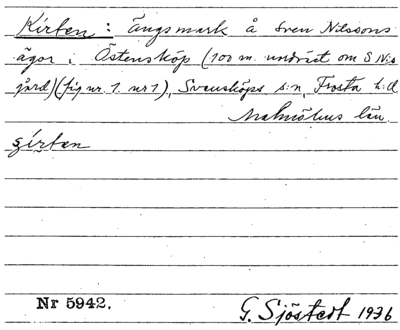 Kirten: Ängsmark å Sven Nilssons
ägor i Östensköp (100 m. nordöst om S N:s
gård) (fig nr. 1. nr 1), Svensköps s:n, Frosta h:d
Malmöhus län.
Nr 5942.
G. Sjöstedt 1936